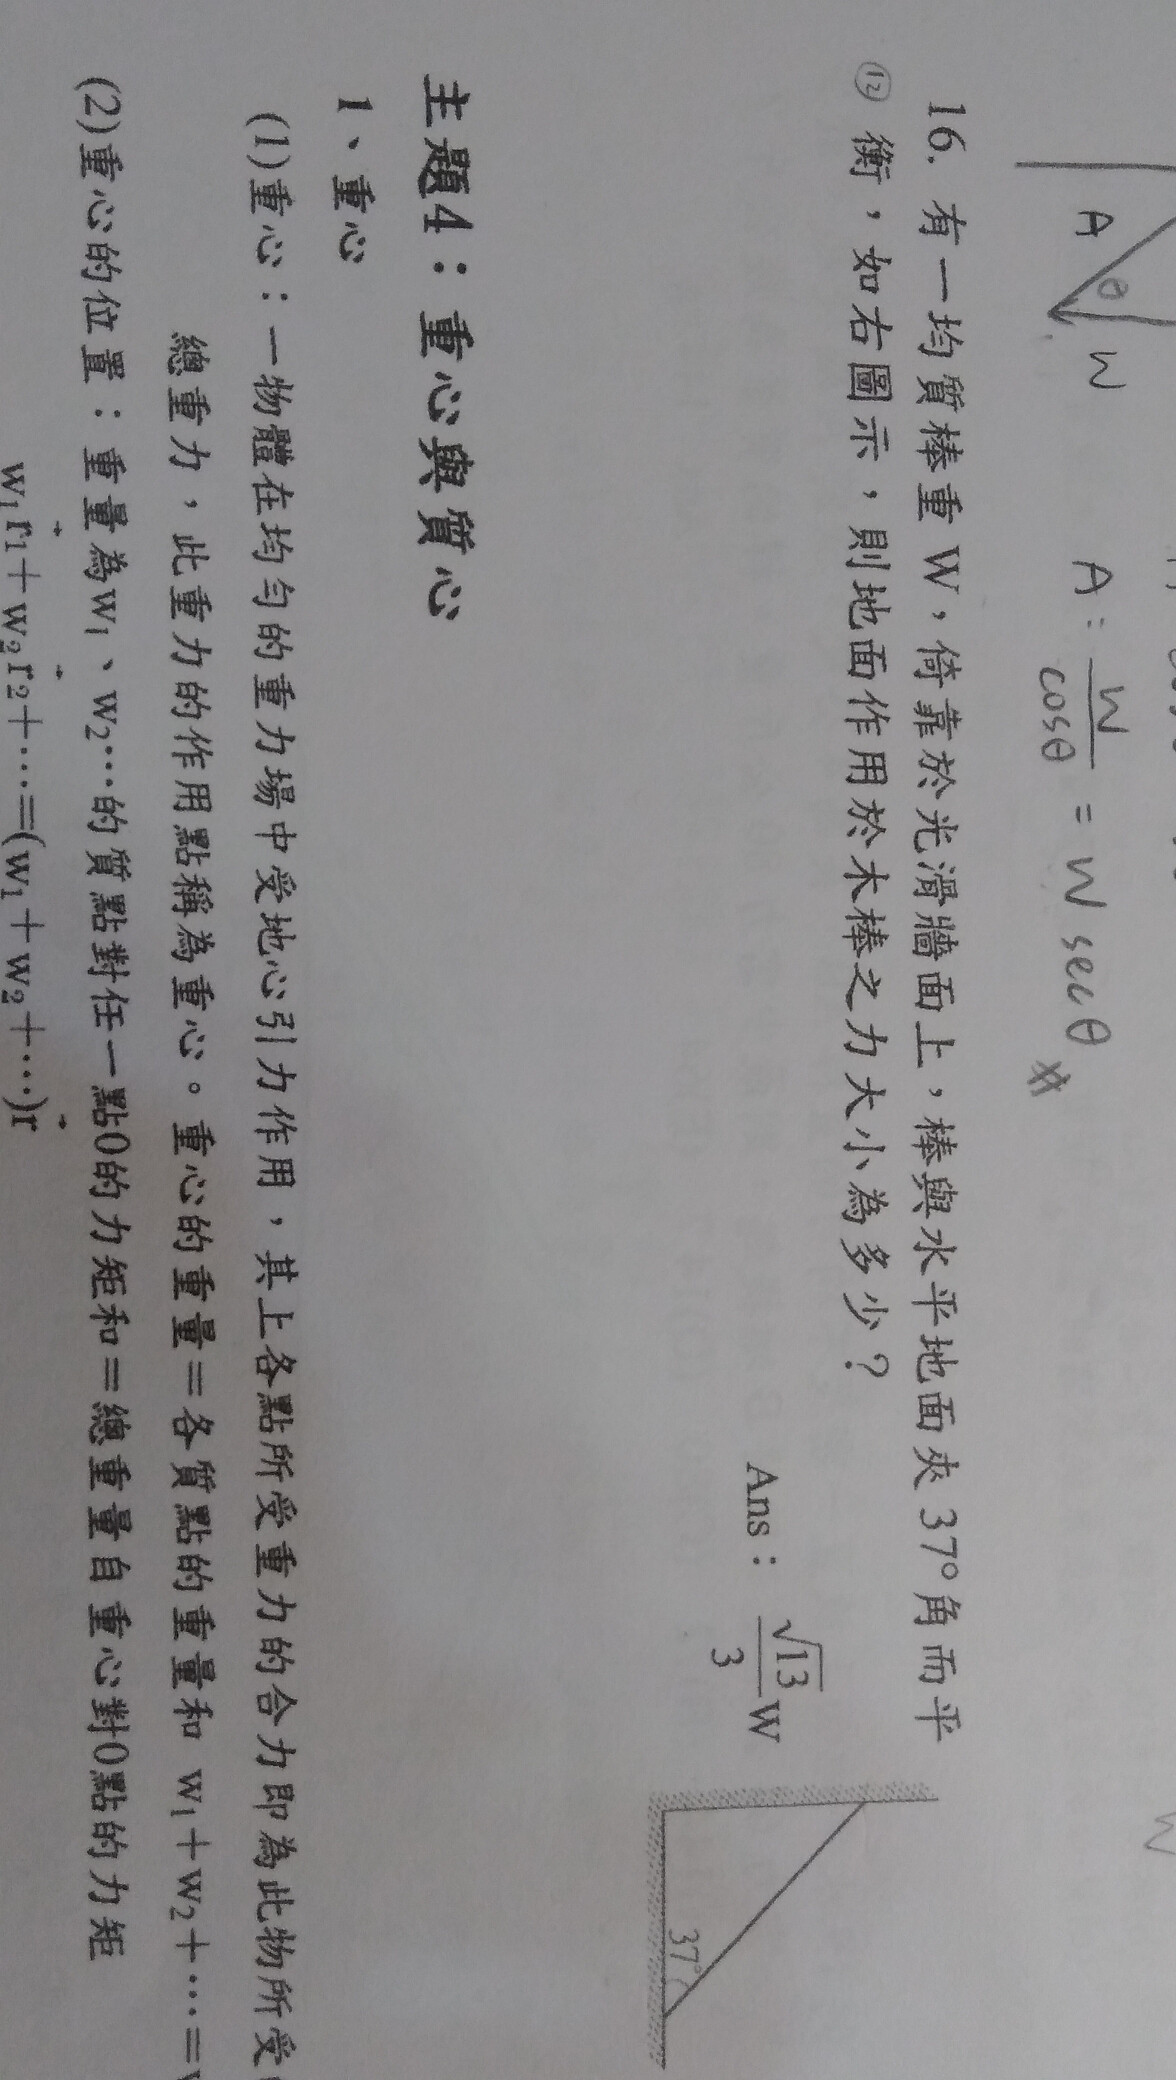 A
θ
W
A: W/cosθ = W secθ
16. 有一均質棒重 W，倚靠於光滑牆面上，棒與水平地面夾 37°角而平
⑫ 衡，如右圖示，則地面作用於木棒之力大小為多少？
Ans： √13/3 W
37°
主題4：重心與質心
1、重心
(1)重心：一物體在均勻的重力場中受地心引力作用，其上各點所受重力的合力即為此物所受
總重力，此重力的作用點稱為重心。重心的重量＝各質點的重量和 w₁＋w₂＋…＝
(2)重心的位置：重量為w₁、w₂…的質點對任一點0的力矩和＝總重量自重心對0點的力矩
w₁r⃗₁＋w₂r⃗₂＋…＝(w₁＋w₂＋…)r⃗